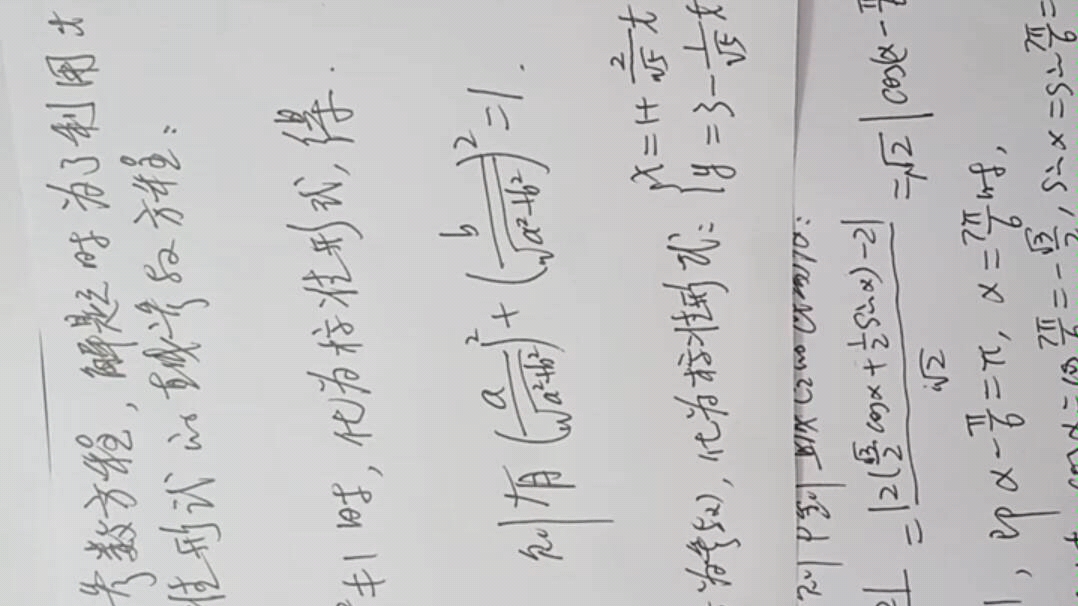 参数方程，解题时为了利用t
准形式的直线参数方程：
≠1时，化为标准形式，得
则有 (a/√(a²+b²))² + (b/√(a²+b²))² = 1.
化为标准形式： {x=1+2/√5 t
y=3-1/√5 t
= |2(√3/2 cosα + 1/2 sinα) - 2| / √2 = √2 | cos(α - π
即 α - π/6 = π, α = 7π/6 时,
7π/6 = -√3/2, sinα = sin 7π/6 =